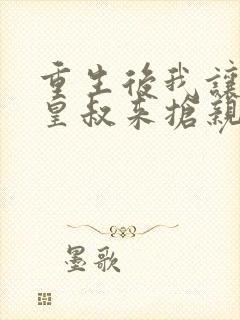 重生後我讓
皇叔來搶親
墨歌